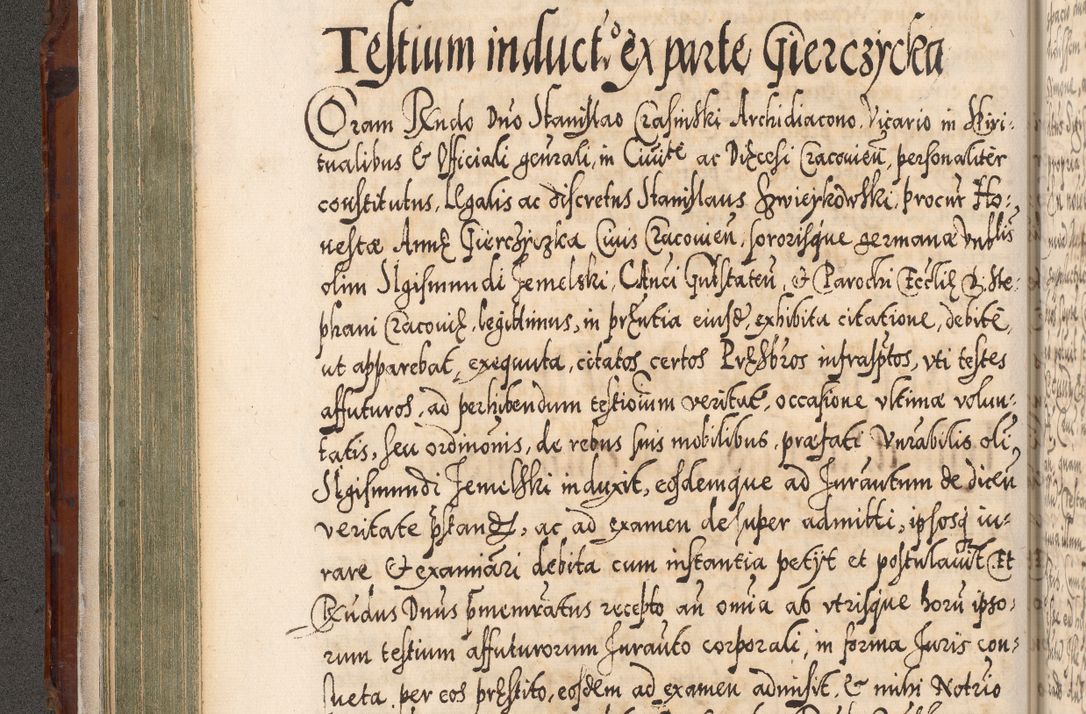 Testium induct: ex parte Gierczycka
Coram Rndo Dno Stanislao Crasinski Archidiacono, Vicario in Spiri-
tualibus & Officiali genrali, in Ciuite ac Dięcesi Cracovień, personaliter
constitutus, Llgalis ac discretus Stanislaus Zwieykowski, procur Ho-
nestæ Annę Gierczyczka Ciuis Cracovień, sororisque germanæ Vnblis
olim Sigismundi Jemelski, Canci Gustateń, & Parochi Ecclię S. Ste-
phani Cracovię, legittimus, in pręntia eiusd, exhibita citatione, debite,
ut apparebat, exequuta, citatos certos Pręsbros infrasptos, vti testes
affuturos, ad perhibendum testionium veritat, occasione vltimæ volun-
tatis, seu ordinonis, de rebus suis mobilibus, præfati Vnrabilis oli
Sigismundi Jemelski induxit, eosdemque ad Jurautum de dicen
veritate pstandę, ac ad examen desuper admitti, ipsosq iu-
rare & examinari debita cum instantia petijt et postulauit Et
Rndus Dnus pmemratus recepto an omnia ab vtrisque horu ipso-
rum testium affuturorum Jurauto corporali, in forma Juris con-
sueta, per eos pręstito, eosdem ad examen admisit, & mihi Notrio